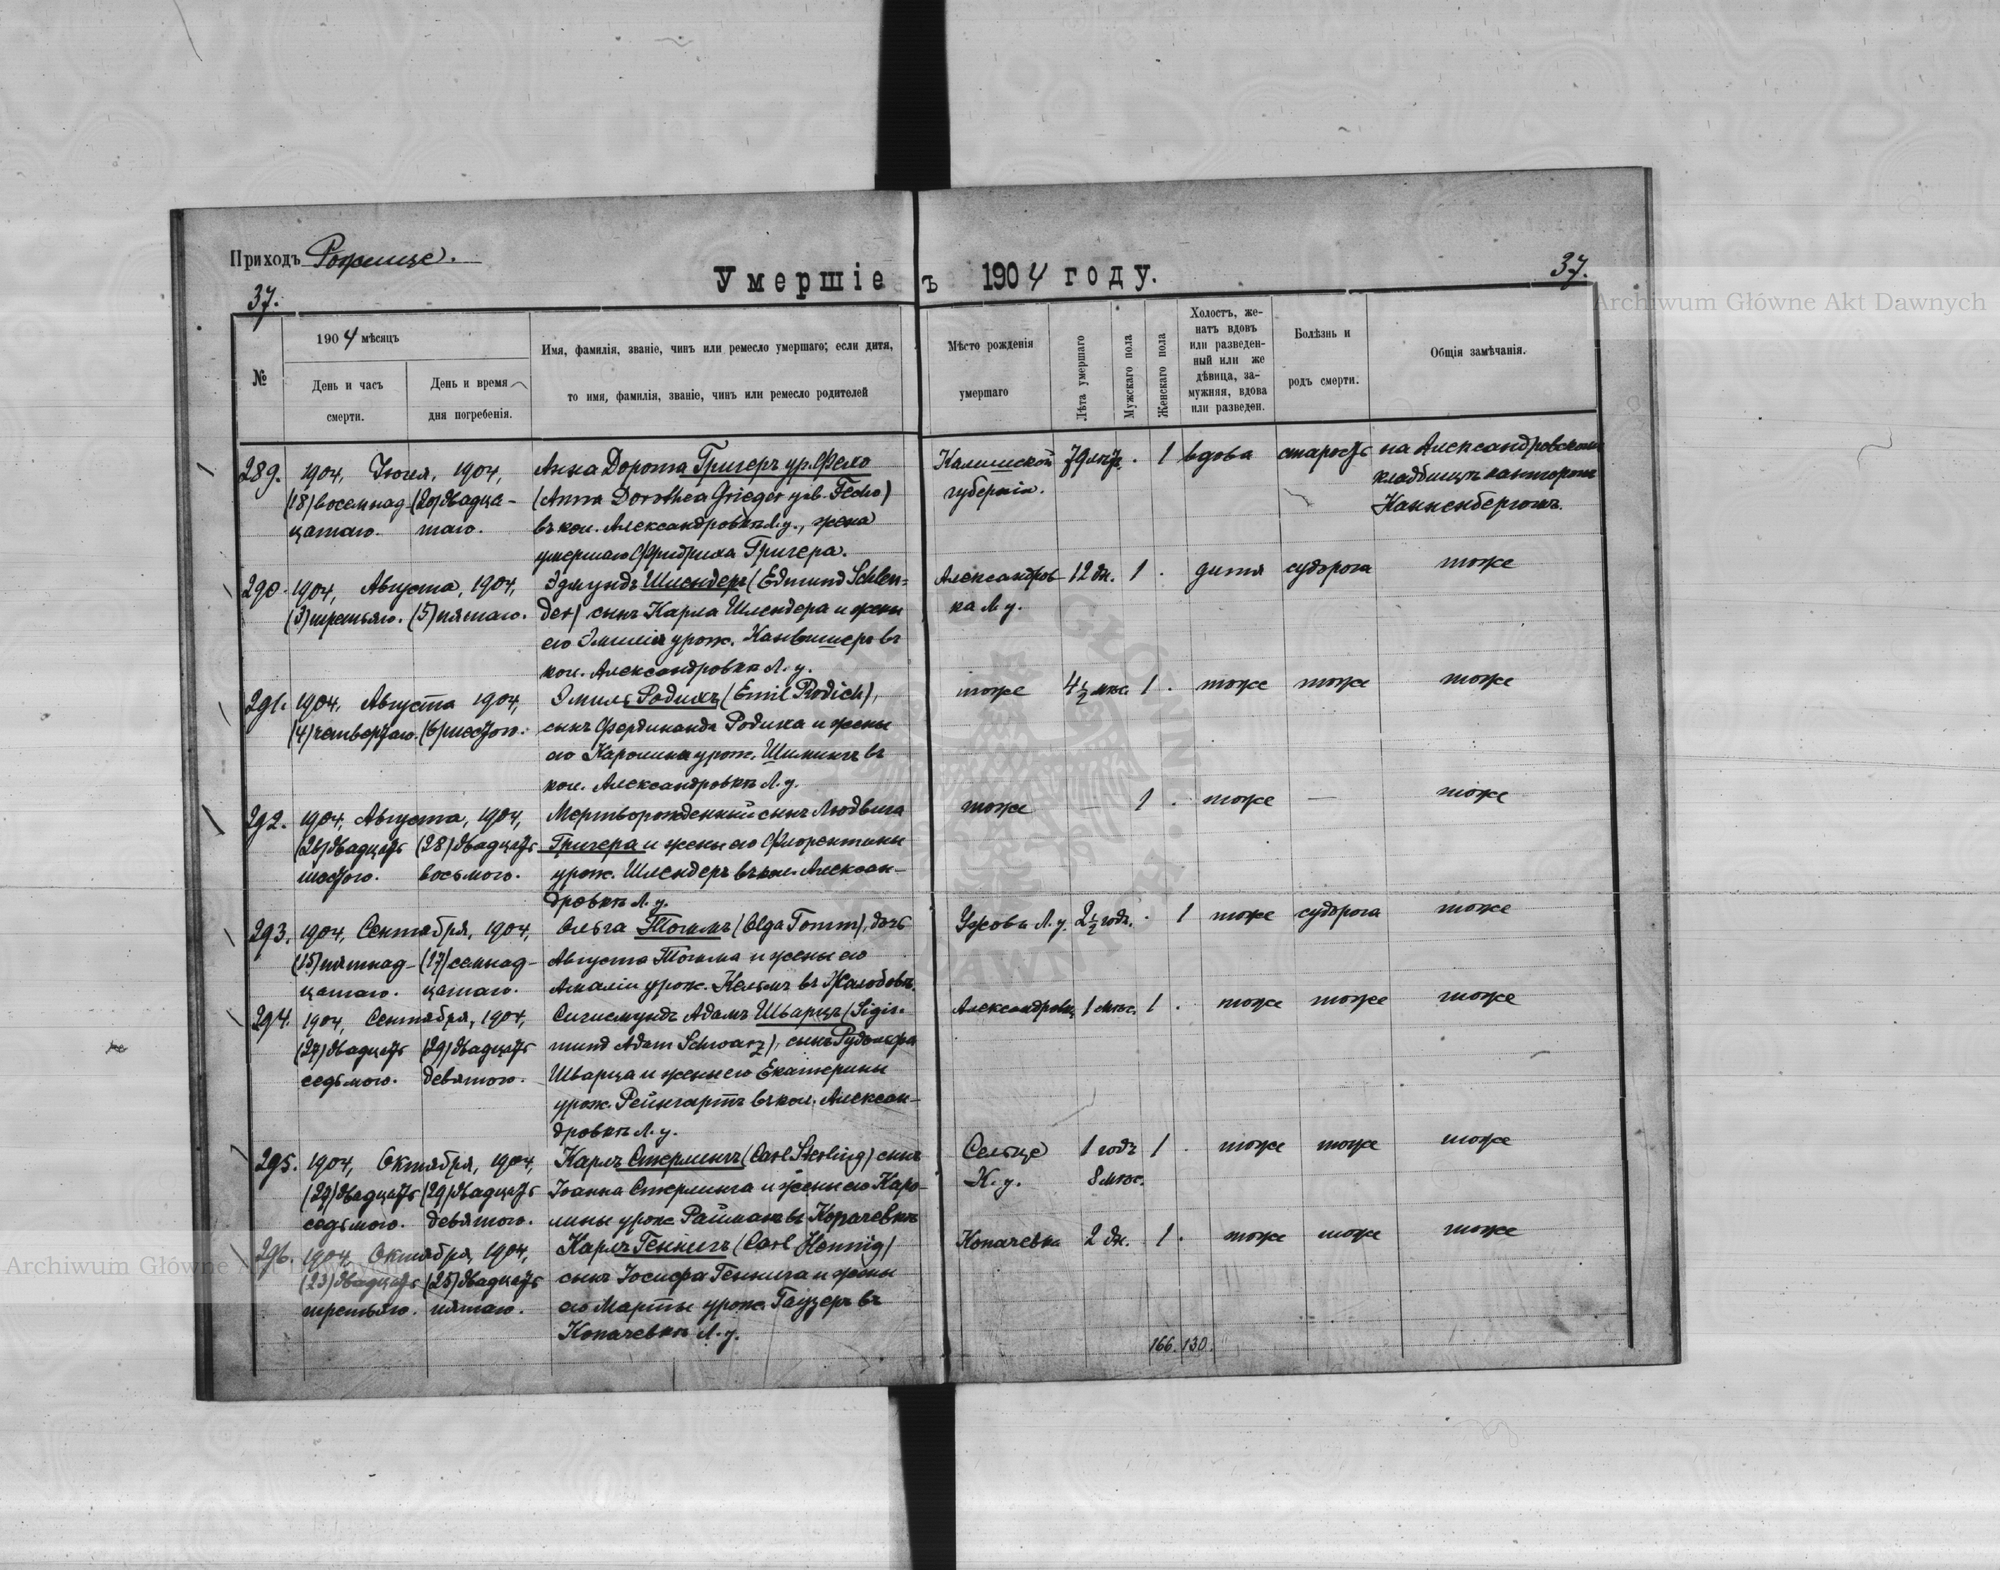 Archiwum Główne Akt Dawnych
Приходъ Рожище.
Умершіе въ 1904 году.
37.
37.
№
1904 мѣсяцъ
День и часъ смерти.
День и время дня погребенія.
Имя, фамилія, званіе, чинъ или ремесло умершаго; если дитя,
то имя, фамилія, званіе, чинъ или ремесло родителей
Мѣсто рожденія
умершаго
Лѣта умершаго
Мужскаго пола
Женскаго пола
Холостъ, же-
натъ вдовъ
или разведен-
ный или же
дѣвица, за-
мужняя, вдова
или разведен.
Болѣзнь и
родъ смерти.
Общія замѣчанія.
289. 1904, Іюля, 1904,
(18) восемнад- (20) двадца-
цатаго. таго.
Анна Дорота Григеръ ур. Фехо
(Anna Dorothea Grieger geb. Fecho)
въ кол. Александровкѣ Л. у., жена
умершаго Фридриха Григера.
Калишской
губерніи.
79 лѣтъ . 1 вдова старость на Александровскомъ
кладбищѣ канторомъ
Канненбергомъ.
290. 1904, Августа, 1904,
(3) третьяго. (5) пятаго.
Эдмундъ Шлендеръ (Edmund Schlen-
der) сынъ Карла Шлендера и жены
его Эмиліи урож. въ
кол. Александровкѣ Л. у.
Александров-
ка Л у.
12 дн. 1 . дитя судорога тоже
291. 1904, Августа 1904,
(4) четвертаго. (6) шестого.
Эмиль Родихъ (Emil Rodich),
сынъ Фердинанда Родиха и жены
его Каролины урож. въ
кол. Александровкѣ Л. у.
тоже 4½ мѣс. 1 . тоже тоже тоже
292. 1904, Августа, 1904,
(26) двадцать (28) двадцать
шестого. восьмого.
Мертворожденный сынъ Людвига
Григера и жены его Флорентины
урож. Шлендеръ въ кол. Алексан-
дровкѣ Л. у.
тоже — 1 . тоже — тоже
293. 1904, Сентября, 1904,
(15) пятнад- (17) семнад-
цатаго. цатаго.
Ольга Томмъ (Olga Tomm), дочь
Августа Томма и жены его
Амаліи урож. въ
Л. у. 2½ года. . 1 тоже судорога тоже
294. 1904, Сентября, 1904,
(27) двадцать (29) двадцать
седьмого. девятого.
Сигисмундъ Адамъ Шварцъ (Sigis-
mund Adam Schwarz), сынъ Рудольфа
Шварца и жены его Екатерины
урож. Рейнгартъ въ кол. Алексан-
дровкѣ Л. у.
Александровка 1 мѣс. 1 . тоже тоже тоже
295. 1904, Октября, 1904,
(27) двадцать (29) двадцать
седьмого. девятого.
Карлъ Стерлингъ (Carl Sterling) сынъ
Іоанна Стерлинга и жены его Каро-
лины урож. Райманъ въ Копачевкѣ
Сельце
К. у.
1 годъ
8 мѣс.
1 . тоже тоже тоже
296. 1904, Октября, 1904,
(23) двадцать (25) двадцать
третьяго. пятаго.
Карлъ Геннигъ (Carl Hennig)
сынъ Іосифа Геннига и жены
его Марты урож. Гаузеръ въ
Копачевкѣ Л. у.
Копачевка 2 дн. 1 . тоже тоже тоже
166. 130.
Archiwum Główne Akt Dawnych